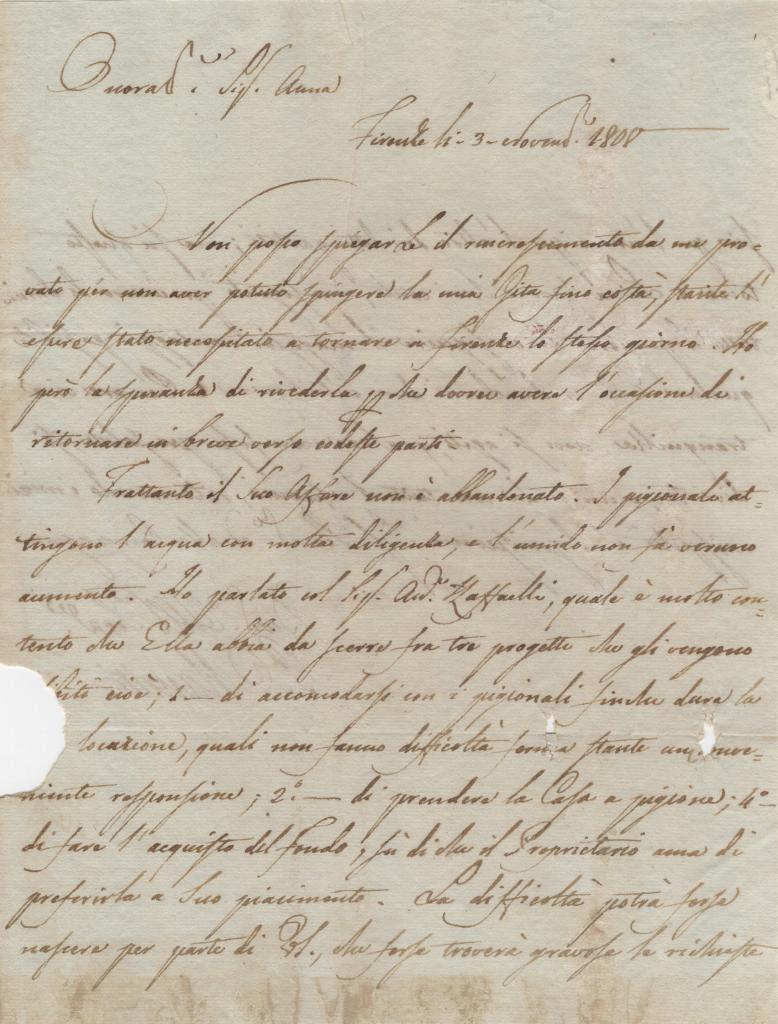 Onorad.ma Sig.ra Anna
Firenze li- 3- Novemb.e 1808
Non posso spiegarLe il rincrescimento da me pro=
vato per non aver potuto spingere la mia Gita fino costà, stante l'
essere stato necessitato a tornare a Firenze lo stesso giorno. Ho
però la speranza di rivederla che dovrei avere l'occasione di
ritornare in breve verso codeste parti
Frattanto il Suo Affare non è abbandonato. I pigionali at=
tingono l'acqua con molta diligenza, e l'umido non fà veruno
aumento. Ho parlato col Sig. And.a Raffaelli, quale è molto con=
tento che Ella abbia da scerre fra tre progetti che gli vengono
cioè; 1- di accomodarsi con i pigionali finche dura la
locazione, quali non fanno difficoltà stante
niente responsione; 2.° - di prendere la Casa a pigione; 4°-
di fare l'acquisto del fondo, sù di che il Proprietario ama di
preferirla a Suo piacimento. La difficoltà potrà forse
nascere per parte di VS., che forse troverà gravose le richieste